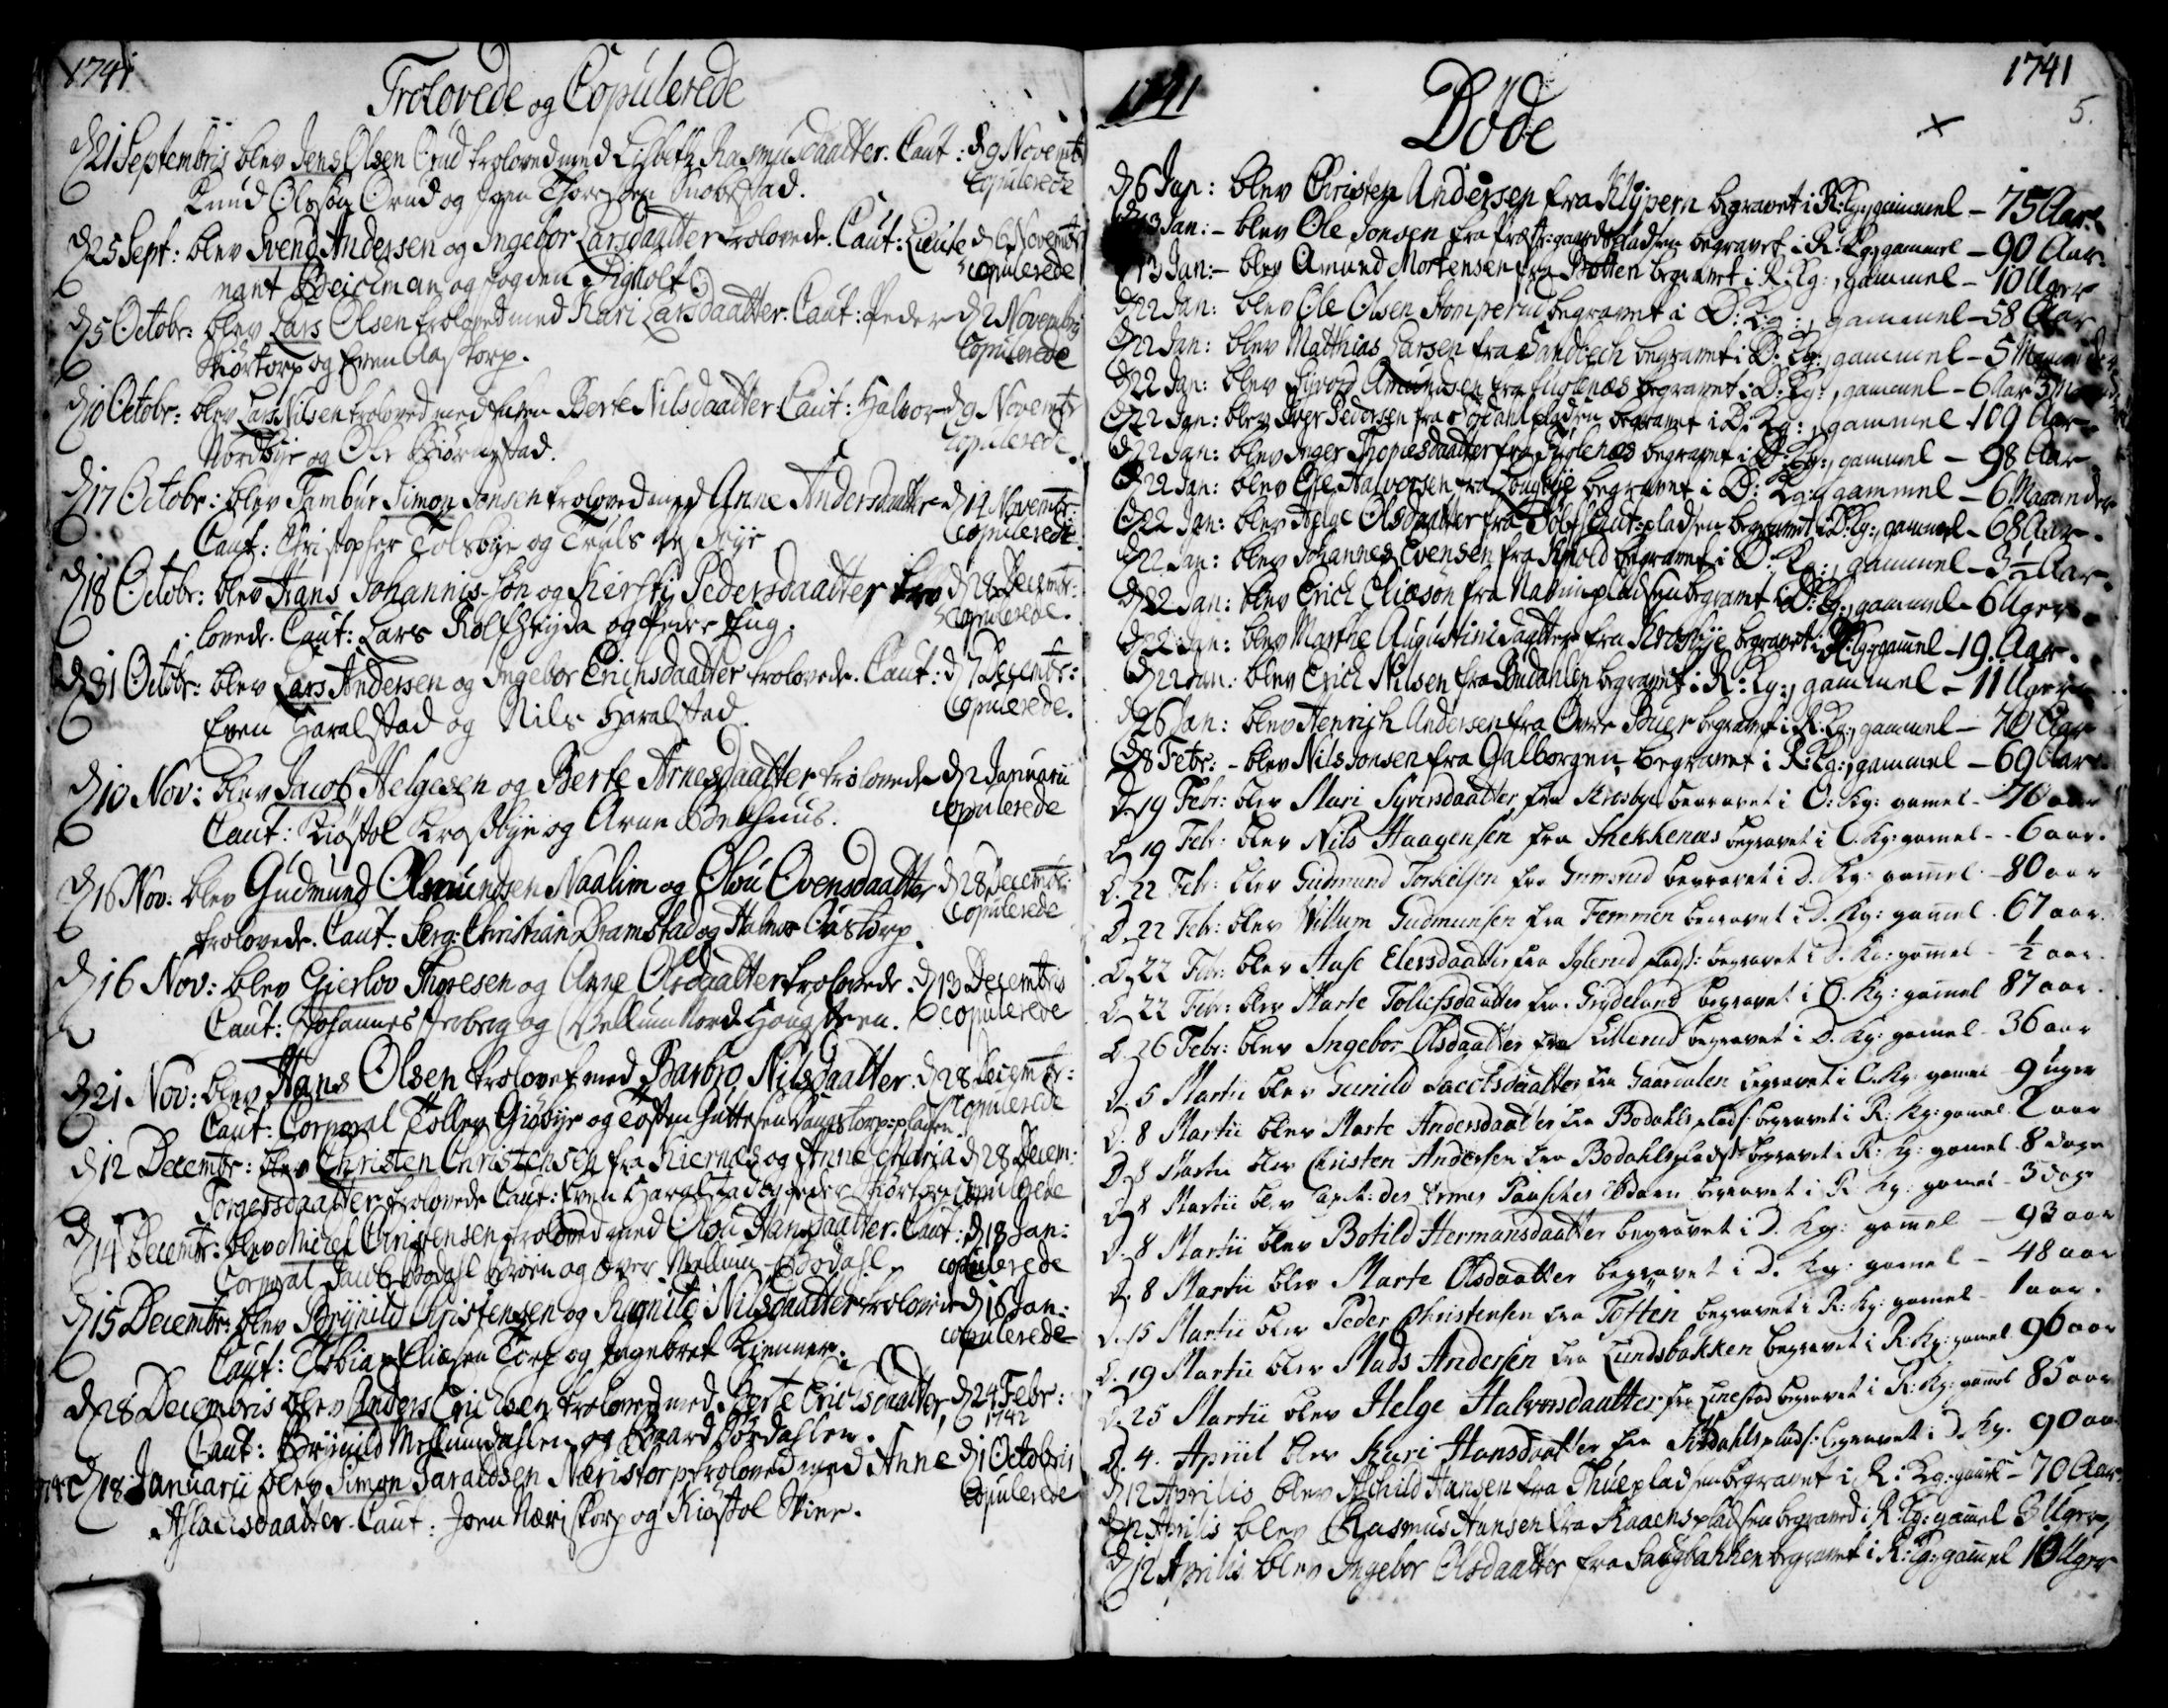 1741
Trolovede og Copulerede
D 21 Septembris blev Jens Olsen Orud trolovet med Lisbeth Rasmusdaatter. Caut: D 9 Novembr
Knud Olsøn Orud og Snobstad. Copulerede
D 25 Sept: blev Svend Andersen og Ingebor Larsdaatter trolovede. Caut: Lieute D 6 Novembr
nant Beichman og fogden Rignolt copulerede
D 5 Octobr: blev Lars Olsen trolovet med Kari Larsdaatter. Caut: Peder D 2 Novembris
Skiørtorp og Even Aastorp. Copulerede
D 10 Octobr: blev Lars Nilsen trolovet med Berte Nilsdaatter. Caut: Halvor D 9 Novembr
Nordbye og Ole Biørnstad. Copulerede
D 17 Octobr: blev Tambur Simon Jonsen trolovet med Anne Andersdaatter D 14 Novembr:
Caut: Christopher Tolsbye og Truls copulerede.
D 18 Octobr: blev Hans Johannis-søn og Kiersti Pedersdaatter tro D 28 Decembr:
lovede. Caut: Lars Rolfsheyde og Peder Eng. copulerede.
D 31 Octobr: blev Lars Andersen og Ingebor Erichsdaatter trolovede. Caut: D 7 Decembr:
Even Haralstad og Nils Haralstad. Copulerede.
D 10 Nov: blev Jacob Helgesen og Berte Arnesdaatter trolovede D 2 Januarii
Caut: Kiøstol Krosbye og Arne copulerede
D 16 Nov: blev Gudmund Asmundsen Naalim og Olou Ovensdaatter D 28 Decembr:
trolovede. Caut: Serg: Christian Bramstad og Halvor Aastorp. Copulerede
D 16 Nov: blev Gierlov Thoresen og Anne Olsdaatter trolovede. D 13 Decembris
Caut: Johannes og Mellum Nord Hougsteen. copulerede
D 21 Nov: blev Hans Olsen trolovet med Barbro Nilsdaatter. D 28 Decembr:
Caut: Corporal Tollev Giøbye og Tosten Guttesen pladsen. Copulerede
D 12 Decembr: blev Christen Christensen fra Kiernes og Anne Maria D 28 Decem:
Torgersdaatter trolovede Caut: Even Haralstad og Peder Skiørtorp copulerede
D 14 Decembr: blev Michel Christensen trolovet med Olou Hansdaatter. Caut: D 18 Jan:
Corporal Jacob Bodahl Børn og Iver Mellum-Bodahl. copulerede
D 15 Decembr: blev Brynild Christensen og Ragnild Nilsdaatter trolovede D 18 Jan:
Caut: Tobias Eliasen Torp og Ingebret Kienner. copulerede
D 28 Decembris blev Anders Erichsen trolovet med Berte Erichsdaatter, D 24 Febr:
Caut: Brynild Mellumdahlen og Baard Sørdahlen. 1742
D 18 Januarii blev Simon Haraldsen Næristorp trolovet med Anne D 1 Octobris
Aslachsdaatter. Caut: Joen Næristorp og Kiøstol Skier. Copulerede
1741 1741
5.
Døde
D 6 Jan: blev Christen Andersen fra Klypern begravet i R: Kg: gammel - 75 Aar.
D 13 Jan: - blev Ole Jonsen fra Præste-gaards pladsen begravet i R: Kg: gammel - 90 Aar.
D 13 Jan: - blev Amund Mortensen fra Botten begravet i R: Kg:, gammel - 10 Uger
D 22 Jan: blev Ole Olsen Stomperud begravet i D: Kg:, gammel - 58 Aar
D 22 Jan: blev Matthias Larsen fra Sandbech begravet i D: Kg:, gammel - 5 Maaneder
D 22 Jan: blev Syvord Amundsen fra Fuglenæs begravet i D: Kg:, gammel - 6 Aar 3 Maaneder
D 22 Jan: blev Iver Pedersen fra begravet i D: Kg:, gammel 109 Aar.
D 22 Jan: blev Inger Thomesdaatter fra Fuglenæs begravet i D: Kg:, gammel - 98 Aar
D 22 Jan: blev Ole Halvorsen fra Tougbye begravet i D: Kg: gammel - 6 Maaneder
D 22 Jan: blev Helge Olsdaatter fra pladsen begravet i D: Kg:, gammel - 68 Aar.
D 22 Jan: blev Johannes Evensen fra Skiold begravet i D: Kg:, gammel - 3½ Aar.
D 22 Jan: blev Erich Eliæsøn fra pladsen begravet i D: Kg:, gammel - 6 Uger.
D 22 Jan: blev Marthe Augustinidaatter fra Krosbye begravet i Kg: gammel - 19 Aar.
D 22 Jan: blev Erich Nilsen fra Budahlen begravet i R: Kg:, gammel - 11 Uger
D 26 Jan: blev Henrich Andersen fra Ovre Buer begravet i R: Kg:, gammel - 70 Aar
D 8 Febr: - blev Nils Jonsen fra Galborgen begravet i R: Kg:, gammel - 69 Aar
D. 19 Febr: blev Mari Syversdaatter fra Krosbye begravet i O: Kg: gamel - 70 aar
D. 19 Febr: blev Nils Haagensen fra Snekkenæs begravet i O. Kg: gamel - 6 aar.
D. 22 Febr: blev Gudmund Torkelsen fra begravet i D. Kg: gammel - 80 aar
D. 22 Febr: blev Willum Gudmunsen fra Femmen begravet i D. Kg: gammel. 67 aar.
D. 22 Febr: blev Aase Elersdaatter fra Iglerud plads: begravet i D. Kg: gammel - ½ aar.
D. 22 Febr: blev Marte Tollefsdaatter fra Grydeland begravet i O. Kg: gammel 87 aar.
D. 26 Febr: blev Ingebor Olsdaatter fra Lillerud begravet i D. Kg: gamel - 36 aar
D. 5 Martii blev Gunild Jacobsdaatter fra Gaardalen begravet i O. Kg: gamel 9 uger
D. 8 Martii blev Marte Andersdaatter fra Bodahls plads: begravet i R. Kg: gamel 2 aar
D. 8 Martii blev Christen Andersen fra Bodahlspladsen begravet i R: Kg: gamel 8 dage
D. 8 Martii blev Capt: des Armes Paaskes Baarn begravet i R Kg: gamel - 3 dage
D. 8 Martii blev Botild Hermansdaatter begravet i D. Kg: gamel - 93 aar
D. 8 Martii blev Marte Olsdaatter begravet i D. Kg: gamel - 48 aar
D. 15 Martii blev Peder Christensen fra Toften begravet i R: Kg: gamel - 1 aar.
D. 19 Martii blev Mads Andersen fra Lundsbakken begravet i R: Kg: gamel 96 aar
D. 25 Martii blev Helge Halvorsdaatter fra Linestad begravet i R: Kg: gamel 85 aar
D. 4. April blev Kari Hansdaatter fra plads: begravet i D. Kg. 90 aar
D 12 Aprilis blev Aschild Hansen fra Thuepladsen begravet i R: Kg: gamel - 70 Aar.
D 12 Aprilis blev Rasmus Hansen fra Kaaenspladsen begraved i R: Kg: gamel 3 Uger,
D 12 Aprilis blev Ingebor Olsdaatter fra Haugbakken begravet i R: Kg: gamel 10 Uger